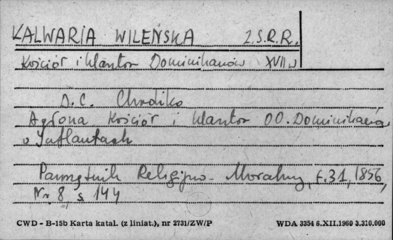 KALWARIA WILEŃSKA Z.S.R.R.
Kościół i klasztor Dominikanów XVII w
D. C. Chodźko
Aglona Kościół i klasztor OO. Dominikanów
w Inflantach
Pamiętnik Religijno-Moralny, t. 31, 1856,
Nr 8, s 144
CWD - B-15b Karta katal. (z liniat.), nr 2731/ZW/P WDA 3334 5.XII.1960 3.310.000